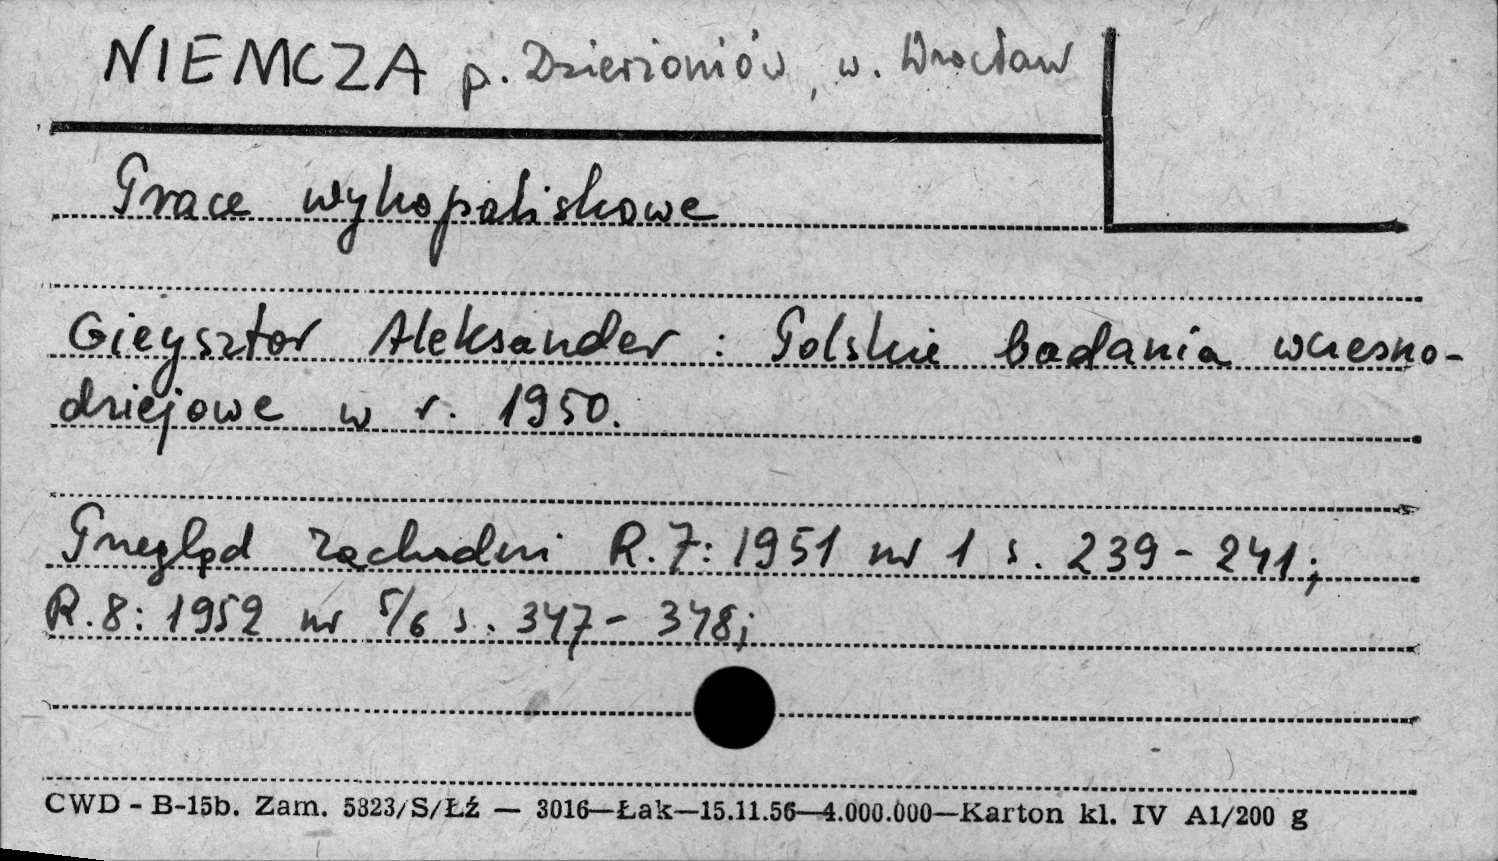 NIEMCZA p. Dzierżoniów, w. Wrocław
Prace wykopaliskowe
Gieysztor Aleksander : Polskie badania wczesno-
dziejowe w r. 1950.
Przegląd zachodni R.7: 1951 nr 1 s. 239 - 241;
R.8: 1952 nr 5/6 s. 347 - 348;
CWD - B-15b. Zam. 5323/S/Łź — 3016—Łak—15.11.56—4.000.000—Karton kl. IV A1/200 g